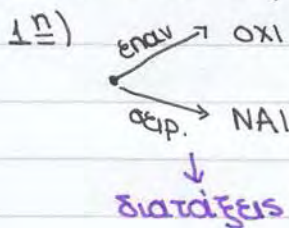 1η)
επαν ΟΧΙ
σειρ. ΝΑΙ
διατάξεις